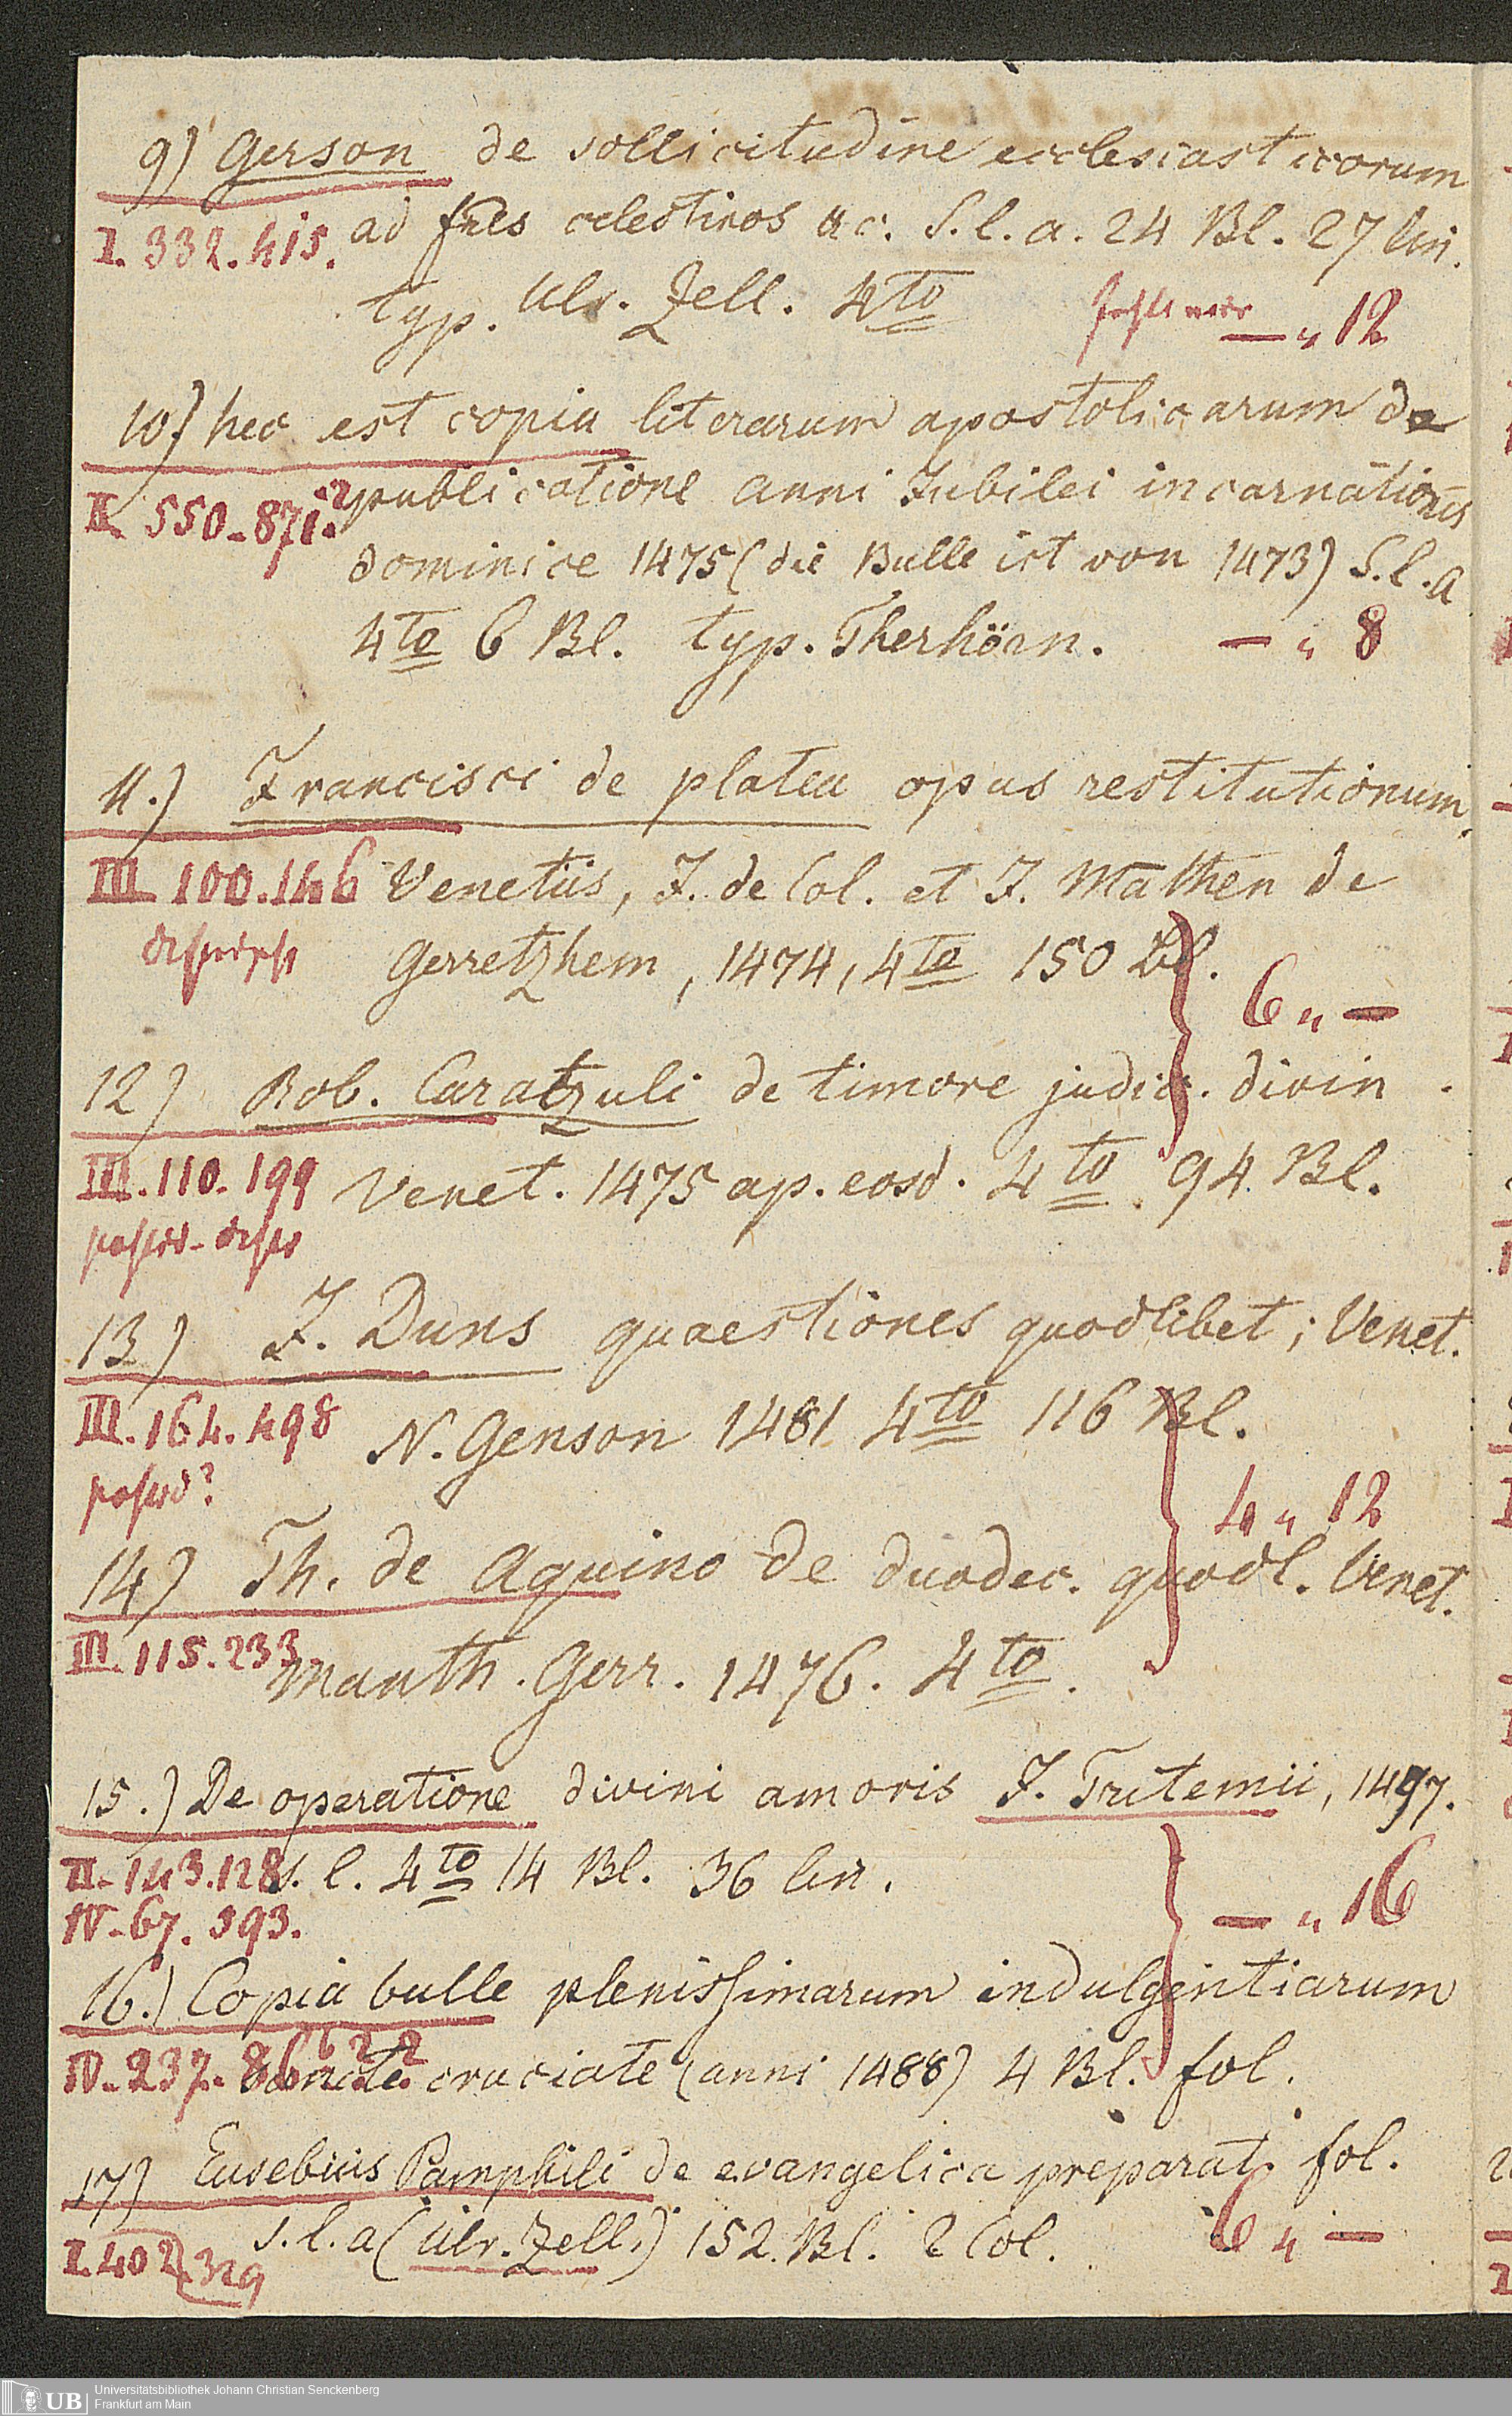 9) Gerson de sollicitudine ecclesiasticorum
I. 332. 415. ad fres celestinos &c. S. l. a. 24 Bl. 27 lin.
typ. Ulr. Zell. 4to fehlt mir — „ 12
10) hec est copia literarum apostolicarum de
II. 550. 871.? publicatione anni Jubilei incarnationis
dominice 1475 (die Bulle ist von 1473) S. l. a
4to 6 Bl. typ. Therhörn. — „ 8
11.) Francisci de platea opus restitutionum,
III 100. 146 Venetiis, J. de Col. et J. Mathen de
Gerretzhem, 1474, 4to 150 Bl.
6 „ —
12) Rob. Caratzuli de timore judic. divin.
III. 110. 199 Venet. 1475 ap. eosd. 4to 94 Bl.
13) J. Duns quaestiones quodlibet; Venet.
III. 164. 498 N. Genson 1481 4to 116 Bl.
4 „ 12
14) Th. de Aquino de duodec. quodl. Venet.
III. 115. 233 Manth. Gerr. 1476. 4to.
15.) De operatione divini amoris J. Tritemii, 1497.
II. 143. 128 s. l. 4to 14 Bl. 36 lin.
IV. 67. 393. — „ 16
16.) Copia bulle plenissimarum indulgentiarum
IV. 237. 86 cruciate (anni 1488) 4 Bl. fol.
17) Eusebius Pamphili de evangelica preparat. fol.
I. 402. 329 s. l. a (Ulr. Zell.) 152. Bl. 2 Col. 6 „ —
UB
Universitätsbibliothek Johann Christian Senckenberg
Frankfurt am Main